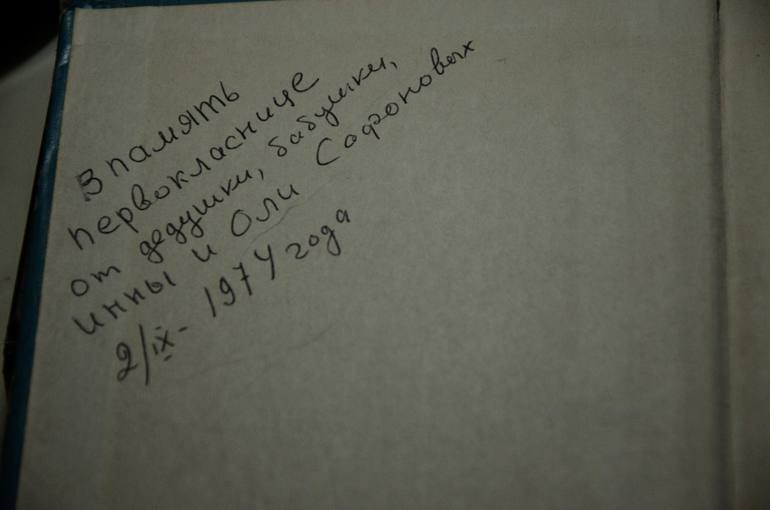 В память
первокласнице
от дедушки, бабушки,
инны и Оли Софоновых
2/IX- 1974 года